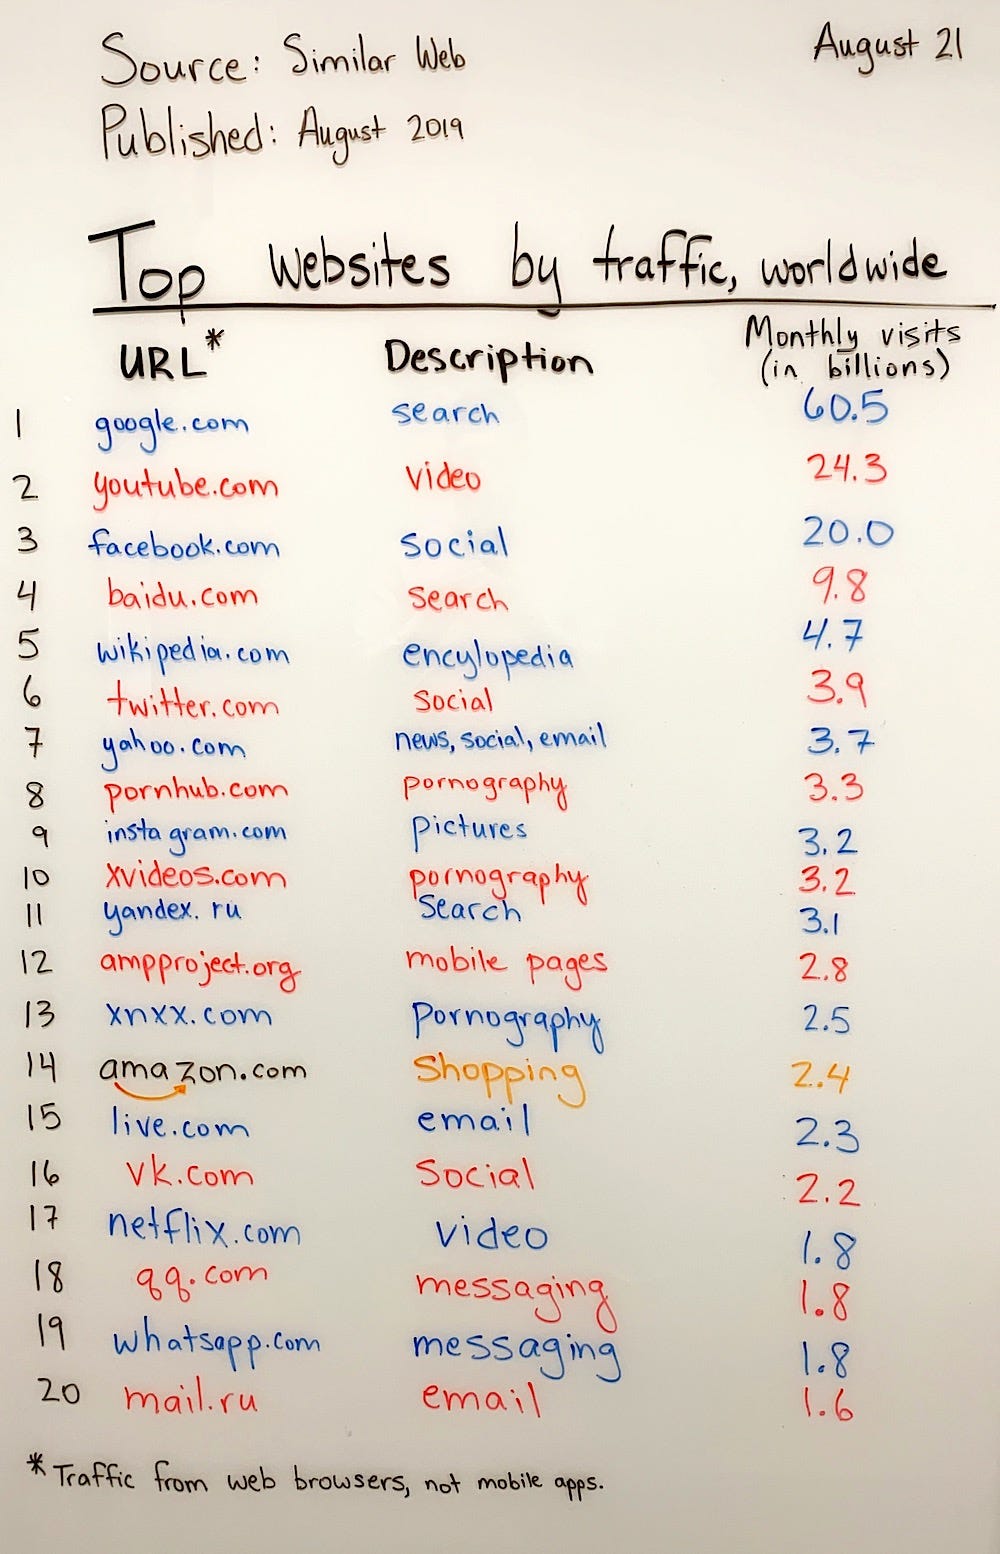 Source: Similar Web August 21
Published: August 2019
Top websites by traffic, worldwide
URL* Description Monthly visits (in billions)
1 google.com search 60.5
2 youtube.com video 24.3
3 facebook.com social 20.0
4 baidu.com search 9.8
5 wikipedia.com encylopedia 4.7
6 twitter.com social 3.9
7 yahoo.com news, social, email 3.7
8 pornhub.com pornography 3.3
9 instagram.com pictures 3.2
10 xvideos.com pornography 3.2
11 yandex.ru Search 3.1
12 ampproject.org mobile pages 2.8
13 xnxx.com Pornography 2.5
14 amazon.com Shopping 2.4
15 live.com email 2.3
16 vk.com Social 2.2
17 netflix.com video 1.8
18 qq.com messaging 1.8
19 whatsapp.com messaging 1.8
20 mail.ru email 1.6
*Traffic from web browsers, not mobile apps.